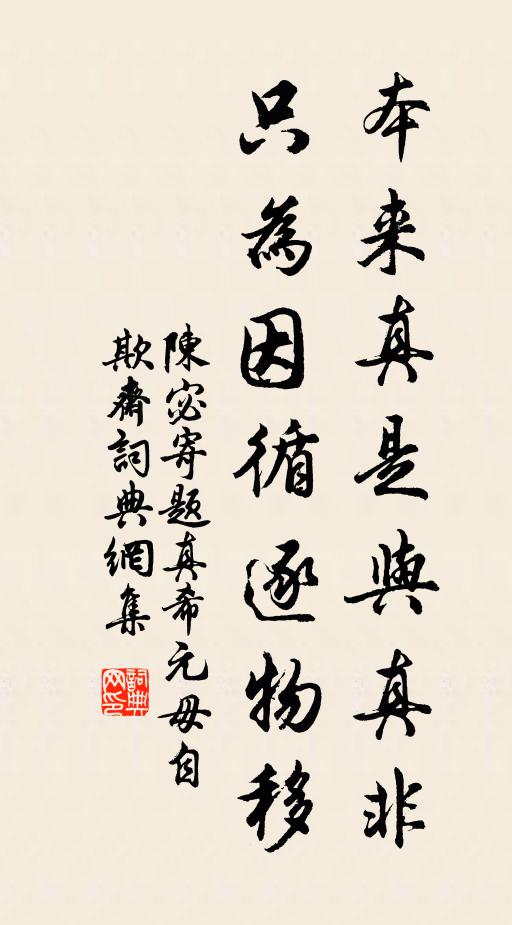 本来真是與真非
只為因循逐物移
陳宓寄題真希元毋自
欺齋詞典網集
詞典网印